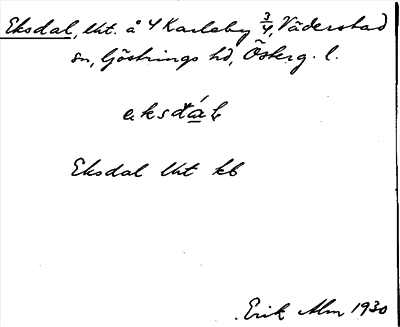 Eksdal, lht. å 4 Karleby 3/4, Väderstad
sn, Göstrings hd, Österg. l.
eksdáɫ
Eksdal lht kb
Erik Alm 1930